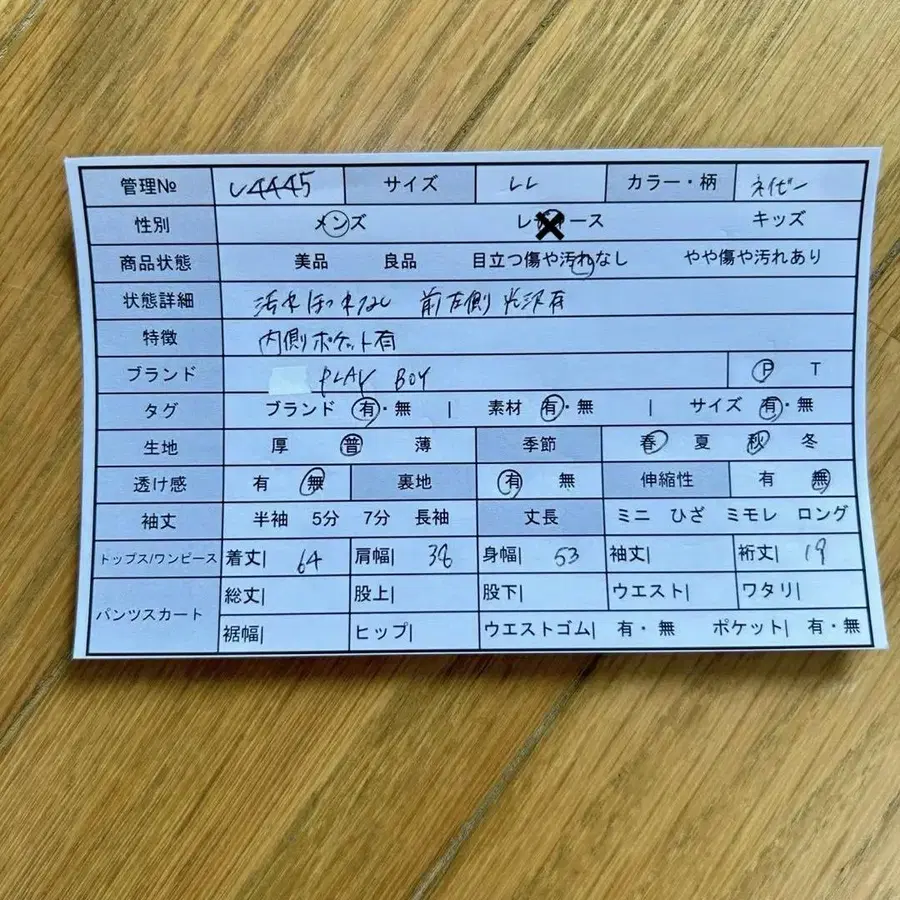 管理№ U4445 サイズ LL カラー・柄 ネイビー
性別 メンズ レディース キッズ
商品状態 美品 良品 目立つ傷や汚れなし やや傷や汚れあり
状態詳細 汚れほつれなし 前左側光沢有
特徴 内側ポケット有
ブランド PLAY BOY P T
タグ ブランド 有・無 | 素材 有・無 | サイズ 有・無
生地 厚 普 薄 季節 春 夏 秋 冬
透け感 有 無 裏地 有 無 伸縮性 有 無
袖丈 半袖 5分 7分 長袖 丈長 ミニ ひざ ミモレ ロング
トップス/ワンピース 着丈| 64 肩幅| 38 身幅| 53 袖丈| 裄丈| 19
パンツスカート 総丈| 股上| 股下| ウエスト| ワタリ|
裾幅| ヒップ| ウエストゴム| 有・無 ポケット| 有・無